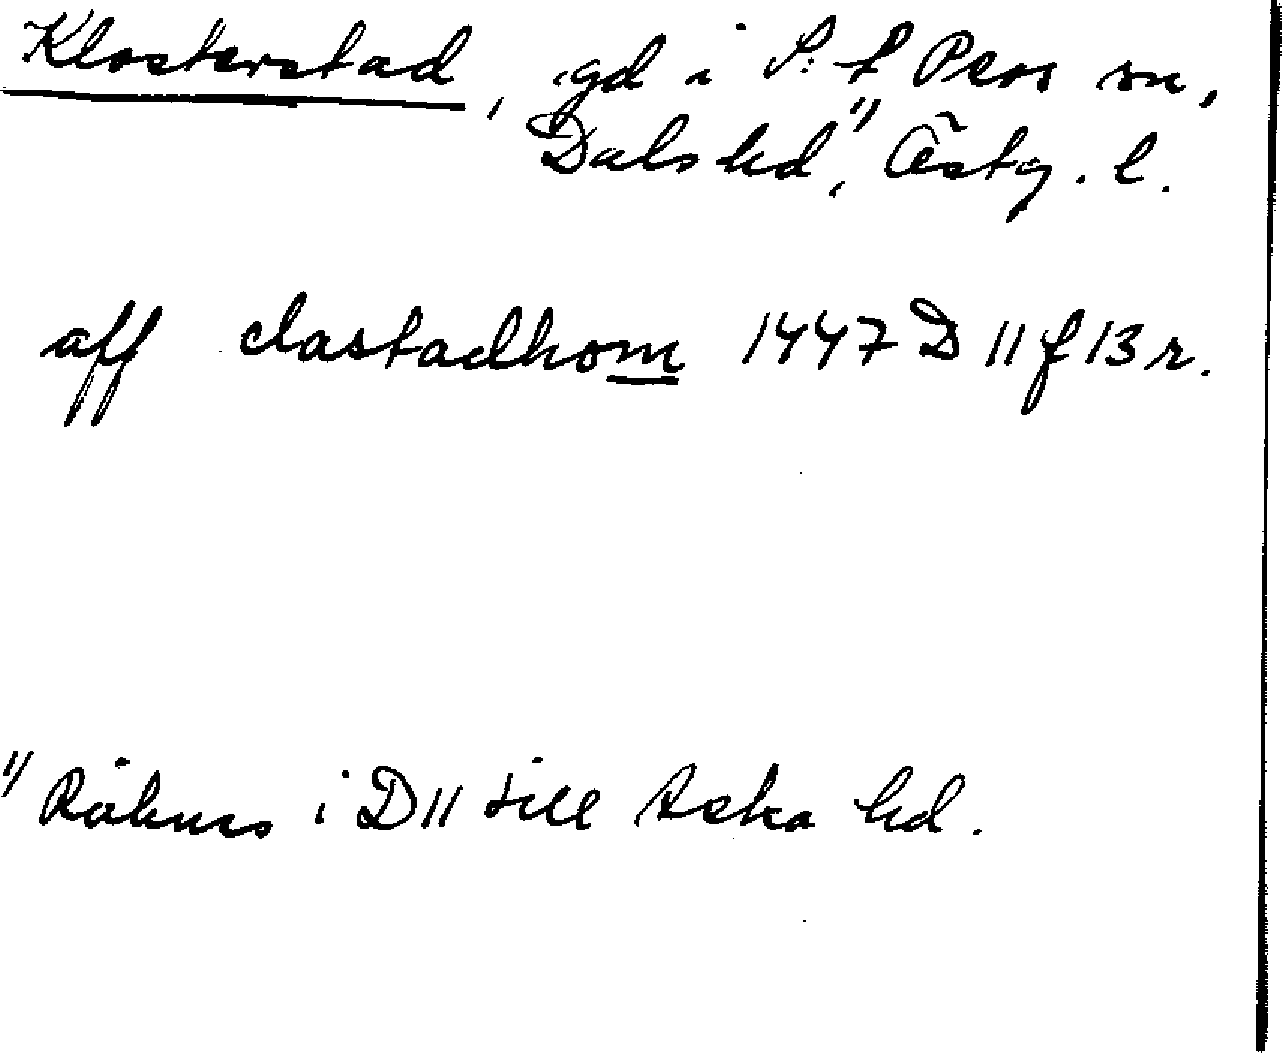 Klosterstad, gd i S:t Pers sn,
Dals hd,¹⁾ Östg. l.
aff clastadhom 1447 D 11 f 13 r.
¹⁾ Räknas i D 11 till Aska hd.